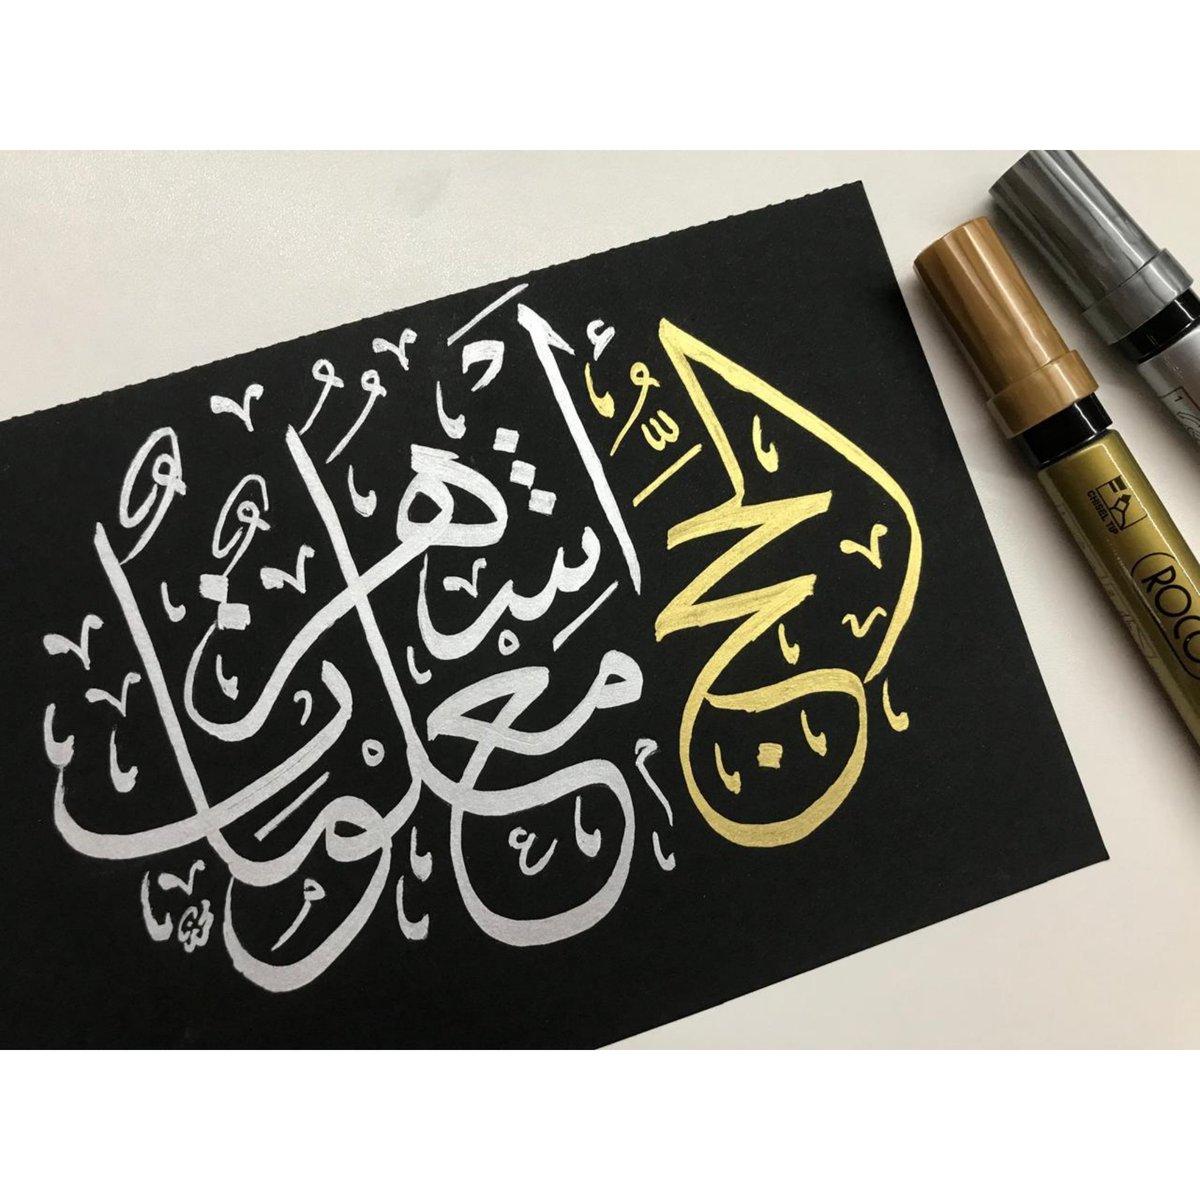 الحَجُّ أَشْهُرٌ مَعْلُومَاتٌ
CHISEL TIP
ROCO